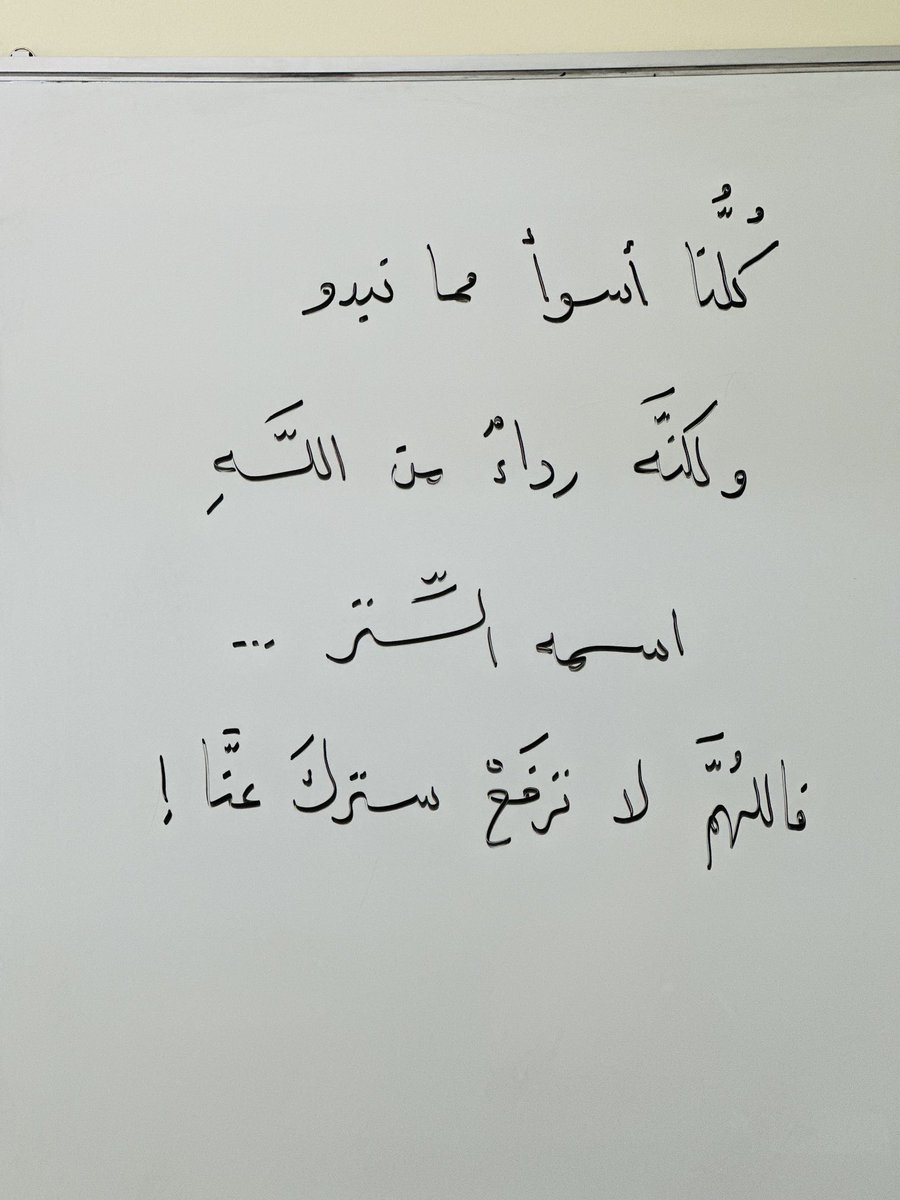 كُلُّنا أسوأ مما نبدو
ولكنَّه رداءٌ من اللَّهِ
اسمه السِّتر ...
فاللهُمَّ لا ترفَعْ ستركَ عنَّا !